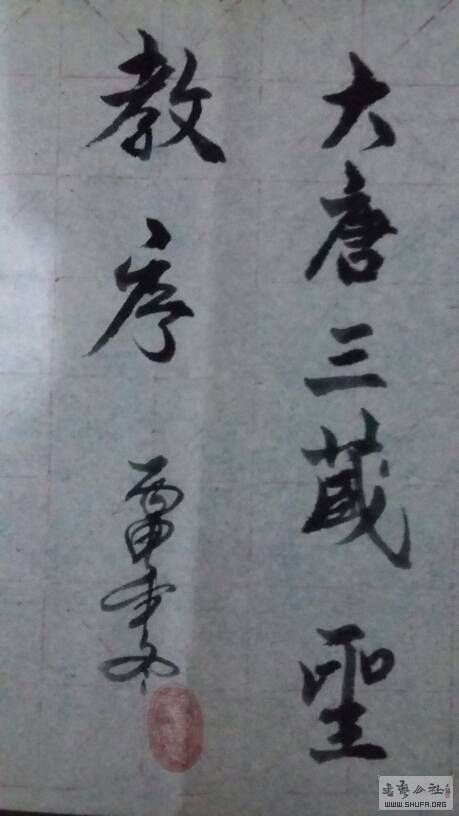 大唐三藏聖
教序
丙申
WWW.SHUFA.ORG